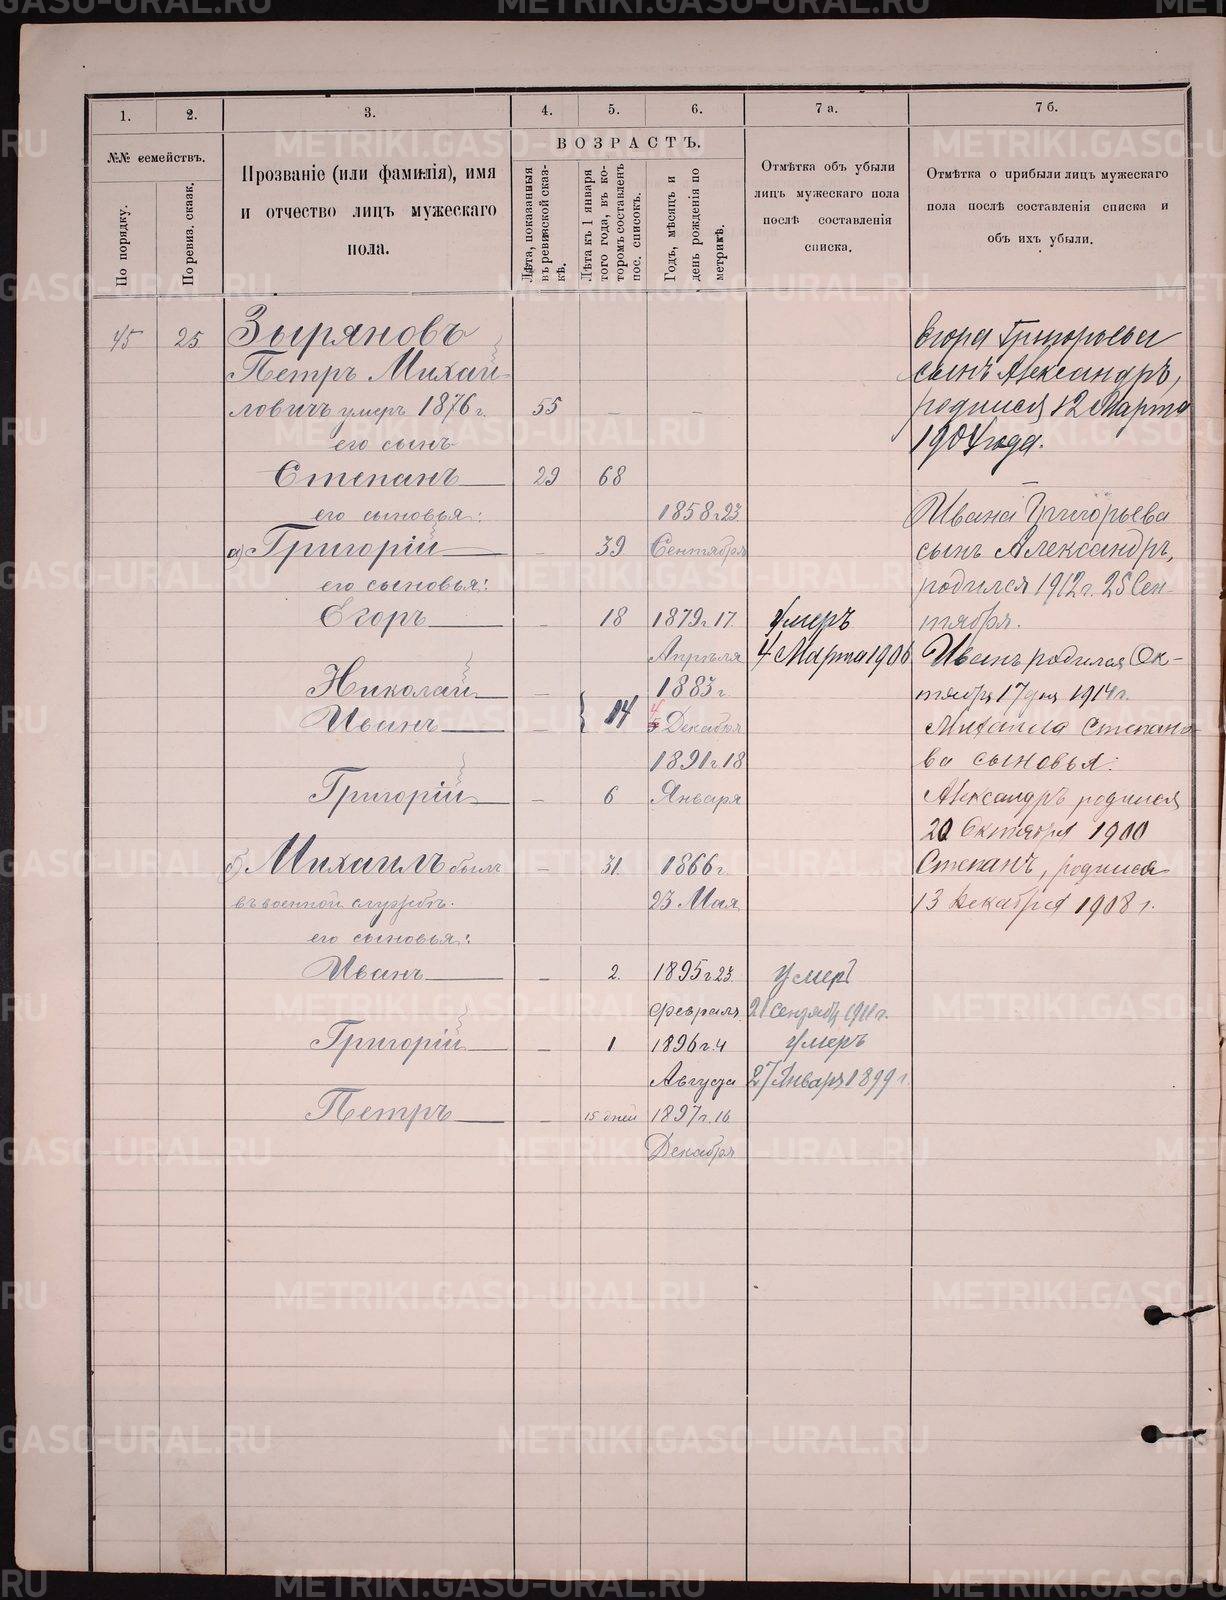 1.
2.
3.
4.
5.
6.
7 а.
7 б.
№№ семействъ.
По порядку.
По ревиз. сказк.
Прозваніе (или фамилія), имя
и отчество лицъ мужескаго
пола.
ВОЗРАСТЪ.
Лѣта, показанныя
въ ревизской сказ-
кѣ.
Лѣта къ 1 января
того года, въ ко-
торомъ составленъ
пос. списокъ.
Годъ, мѣсяцъ и
день рожденія по
метрикѣ.
Отмѣтка объ убыли
лицъ мужескаго пола
послѣ составленія
списка.
Отмѣтка о прибыли лицъ мужескаго
пола послѣ составленія списка и
объ ихъ убыли.
45 25 Зыряновъ
Петръ Михай
ловичъ умеръ 1876 г. 55 — —
его сынъ
Степанъ 29 68
его сыновья: 1858 г. 23
а) Григорій — 39 Сентября
его сыновья:
Егоръ — 18 1879 г. 17 Умеръ
Апрѣля 4 Марта 1906
Николай — 1883 г.
Иванъ — 14 4 Декабря
1891 г. 18
Григорій — 6 Января
б) Михаилъ былъ — 31 1866 г.
въ военной службѣ. 23 Мая
его сыновья:
Иванъ — 2. 1895 г. 23 умеръ
Февраля 21 сентября 1911 г.
Григорій — 1 1896 г. 4 умеръ
Августа 27 Января 1899 г.
Петръ — 15 дней 1897 г. 16
Декабря
Егора Григорьева
сынъ Александръ,
родился 12 Марта
1904 года.
Ивана Григорьева
сынъ Александръ,
родился 1912 г. 25 Сен-
тября.
Иванъ родился Ок-
тября 17 дня 1914 г.
Михаила Степано-
ва сыновья:
Александръ родился
20 Октября 1900
Степанъ, родился
13 Декабря 1908 г.
METRIKI.GASO-URAL.RU